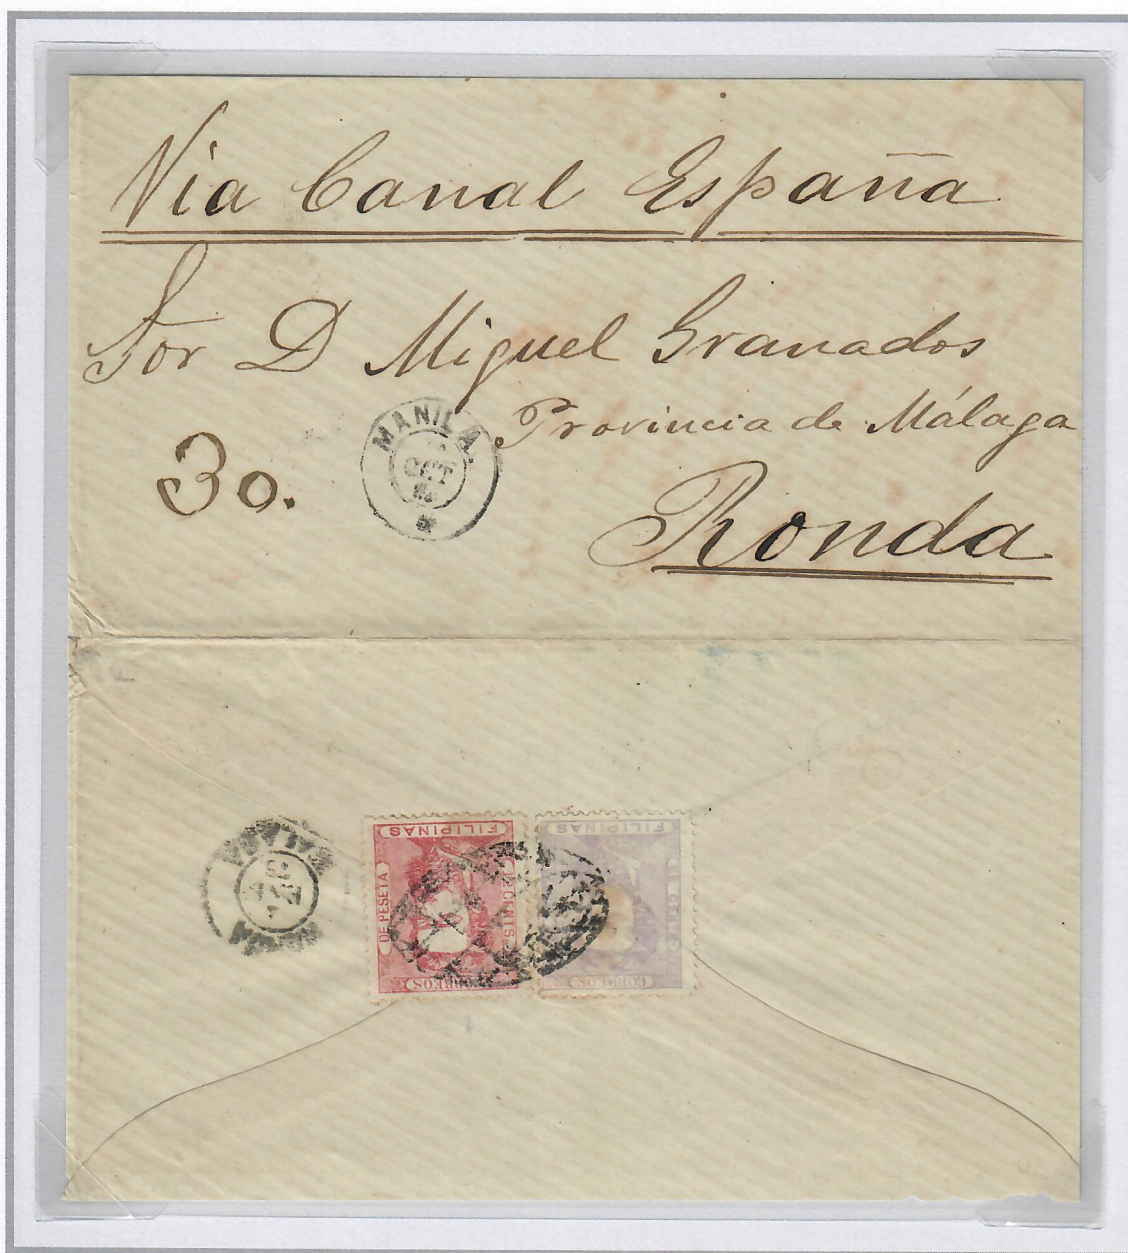 Via Canal España
Sor D Miguel Granados
Provincia de Málaga
30.
MANILA
OCT
Ronda
MALAGA
FILIPINAS
DE PESETA
12 CENTS
CORREOS
FILIPINAS
CORREOS